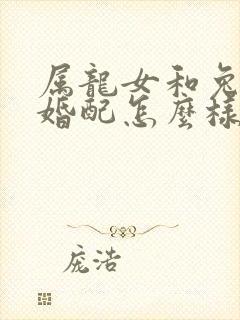 属龍女和兔
婚配怎麽樣
庞浩